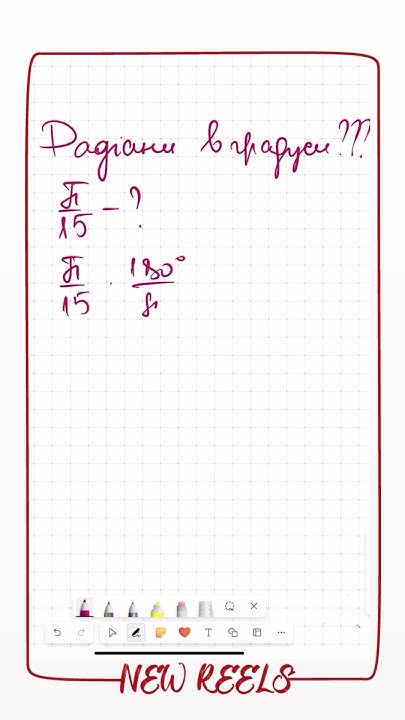 Радіани в градуси???
π/15 - ?
π/15 · 180°/π
NEW REELS